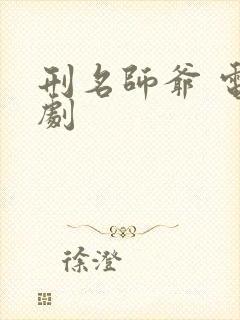 刑名師爺 電
劇
徐澄